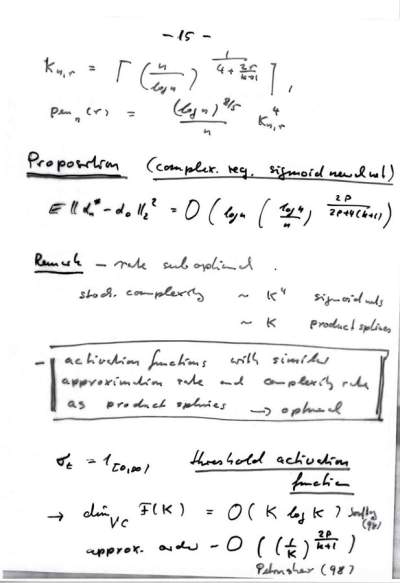 - 15 -
K_{n,r} = ⌈ (n / log n)^{1 / (4 + 2r/(k+1))} ⌉ ,
pen_n(r) = (log n)^{8/5} / n K_{n,r}^4
Proposition (complex. reg. sigmoid neural net)
E ‖ d_n^* - d_0 ‖_2^2 = O ( log n ( log n / n )^{2p / (2p+4(k+1))} )
Remark - rate suboptimal .
stoch. complexity ~ K^4 sigmoid nets
~ K product splines
- activation functions with similar
approximation rate and complexity rate
as product splines → optimal
σ_t = 1_{[0,∞)} threshold activation
function
→ dim_{VC} F(K) = O( K log K ) (98)
approx. order - O ( (1/K)^{2p/(k+1)} )
Petrushev (98)